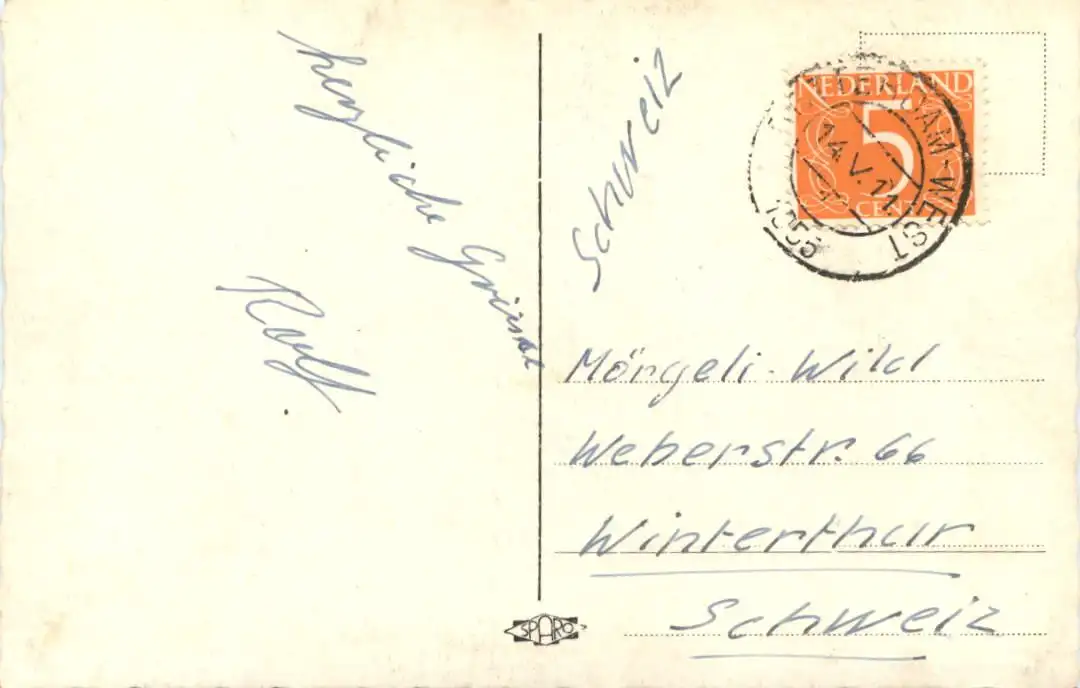 herzliche Grüsse
Rolf.
Schweiz
NEDERLAND
5
CENT
14.V.11
1956
DAM-WEST
Mörgeli-Wild
Weberstr. 66
Winterthur
Schweiz
SPARO